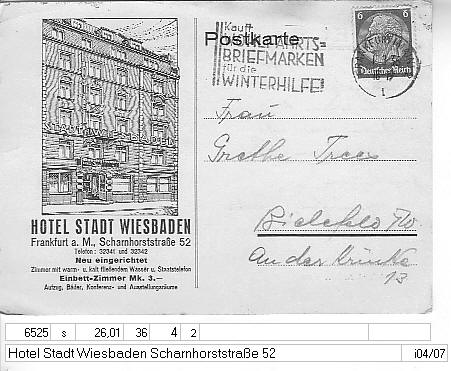 Kauft
WOHLFAHRTS-
BRIEFMARKEN
für die
WINTERHILFE!
Postkarte
6 6
Deutsches Reich
HOTEL STADT WIESBADEN
Frankfurt a. M., Scharnhorststraße 52
Telefon: 32341 und 32342
Neu eingerichtet
Zimmer mit warm- u. kalt fließendem Wasser u. Staatstelefon
Einbett-Zimmer Mk. 3.—
Aufzug, Bäder, Konferenz- und Ausstellungsräume
Frau
Grethe
Bielefeld i/W
An der Krücke
13
6525 s 26,01 36 4 2
Hotel Stadt Wiesbaden Scharnhorststraße 52 i04/07